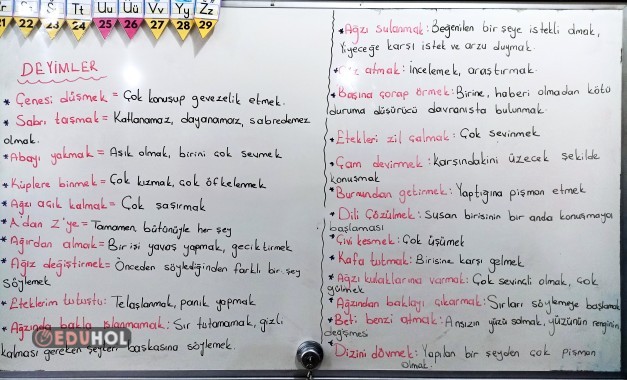 r Ş Tt Uu Üü Vv Yy Zz
21 22 23 24 25 26 27 28 29
DEYİMLER
* Çenesi düşmek = Çok konuşup gevezelik etmek.
* Sabrı taşmak = Katlanamaz, dayanamaz, sabredemez
olmak.
* Abayı yakmak = Aşık olmak, birini çok sevmek
* Küplere binmek = Çok kızmak, çok öfkelenmek
* Ağzı açık kalmak = Çok şaşırmak
* A'dan Z'ye = Tamamen, bütünüyle her şey
* Ağırdan almak = Bir işi yavaş yapmak, geciktirmek
* Ağız değiştirmek = Önceden söylediğinden farklı bir şey
söylemek
* Eteklerim tutuştu: Telaşlanmak, panik yapmak
* Ağzında bakla ıslanmamak: Sır tutamamak, gizli
kalması gereken şeyleri başkasına söylemek.
EDUHOL
* Ağzı sulanmak: Beğenilen bir şeye istekli olmak,
Yiyeceğe karşı istek ve arzu duymak.
* atmak: İncelemek, araştırmak.
* Başına çorap örmek: Birine, haberi olmadan kötü
duruma düşürücü davranışta bulunmak.
* Etekleri zil çalmak: Çok sevinmek
* Çam devirmek: Karşındakini üzecek şekilde
konuşmak
* Burnundan getirmek: Yaptığına pişman etmek
* Dili Çözülmek: Susan birisinin bir anda konuşmaya
başlaması
* Çivi kesmek: Çok üşümek
* Kafa tutmak: Birisine karşı gelmek
* Ağzı kulaklarına varmak: Çok sevinçli olmak, çok
gülmek
* Ağzından baklayı çıkarmak: Sırları söylemeye başlamak
* Beti benzi atmak: Ansızın yüzü solmak, yüzünün renginin
değişmesi
* Dizini dövmek: Yapılan bir şeyden çok pişman
olmak.